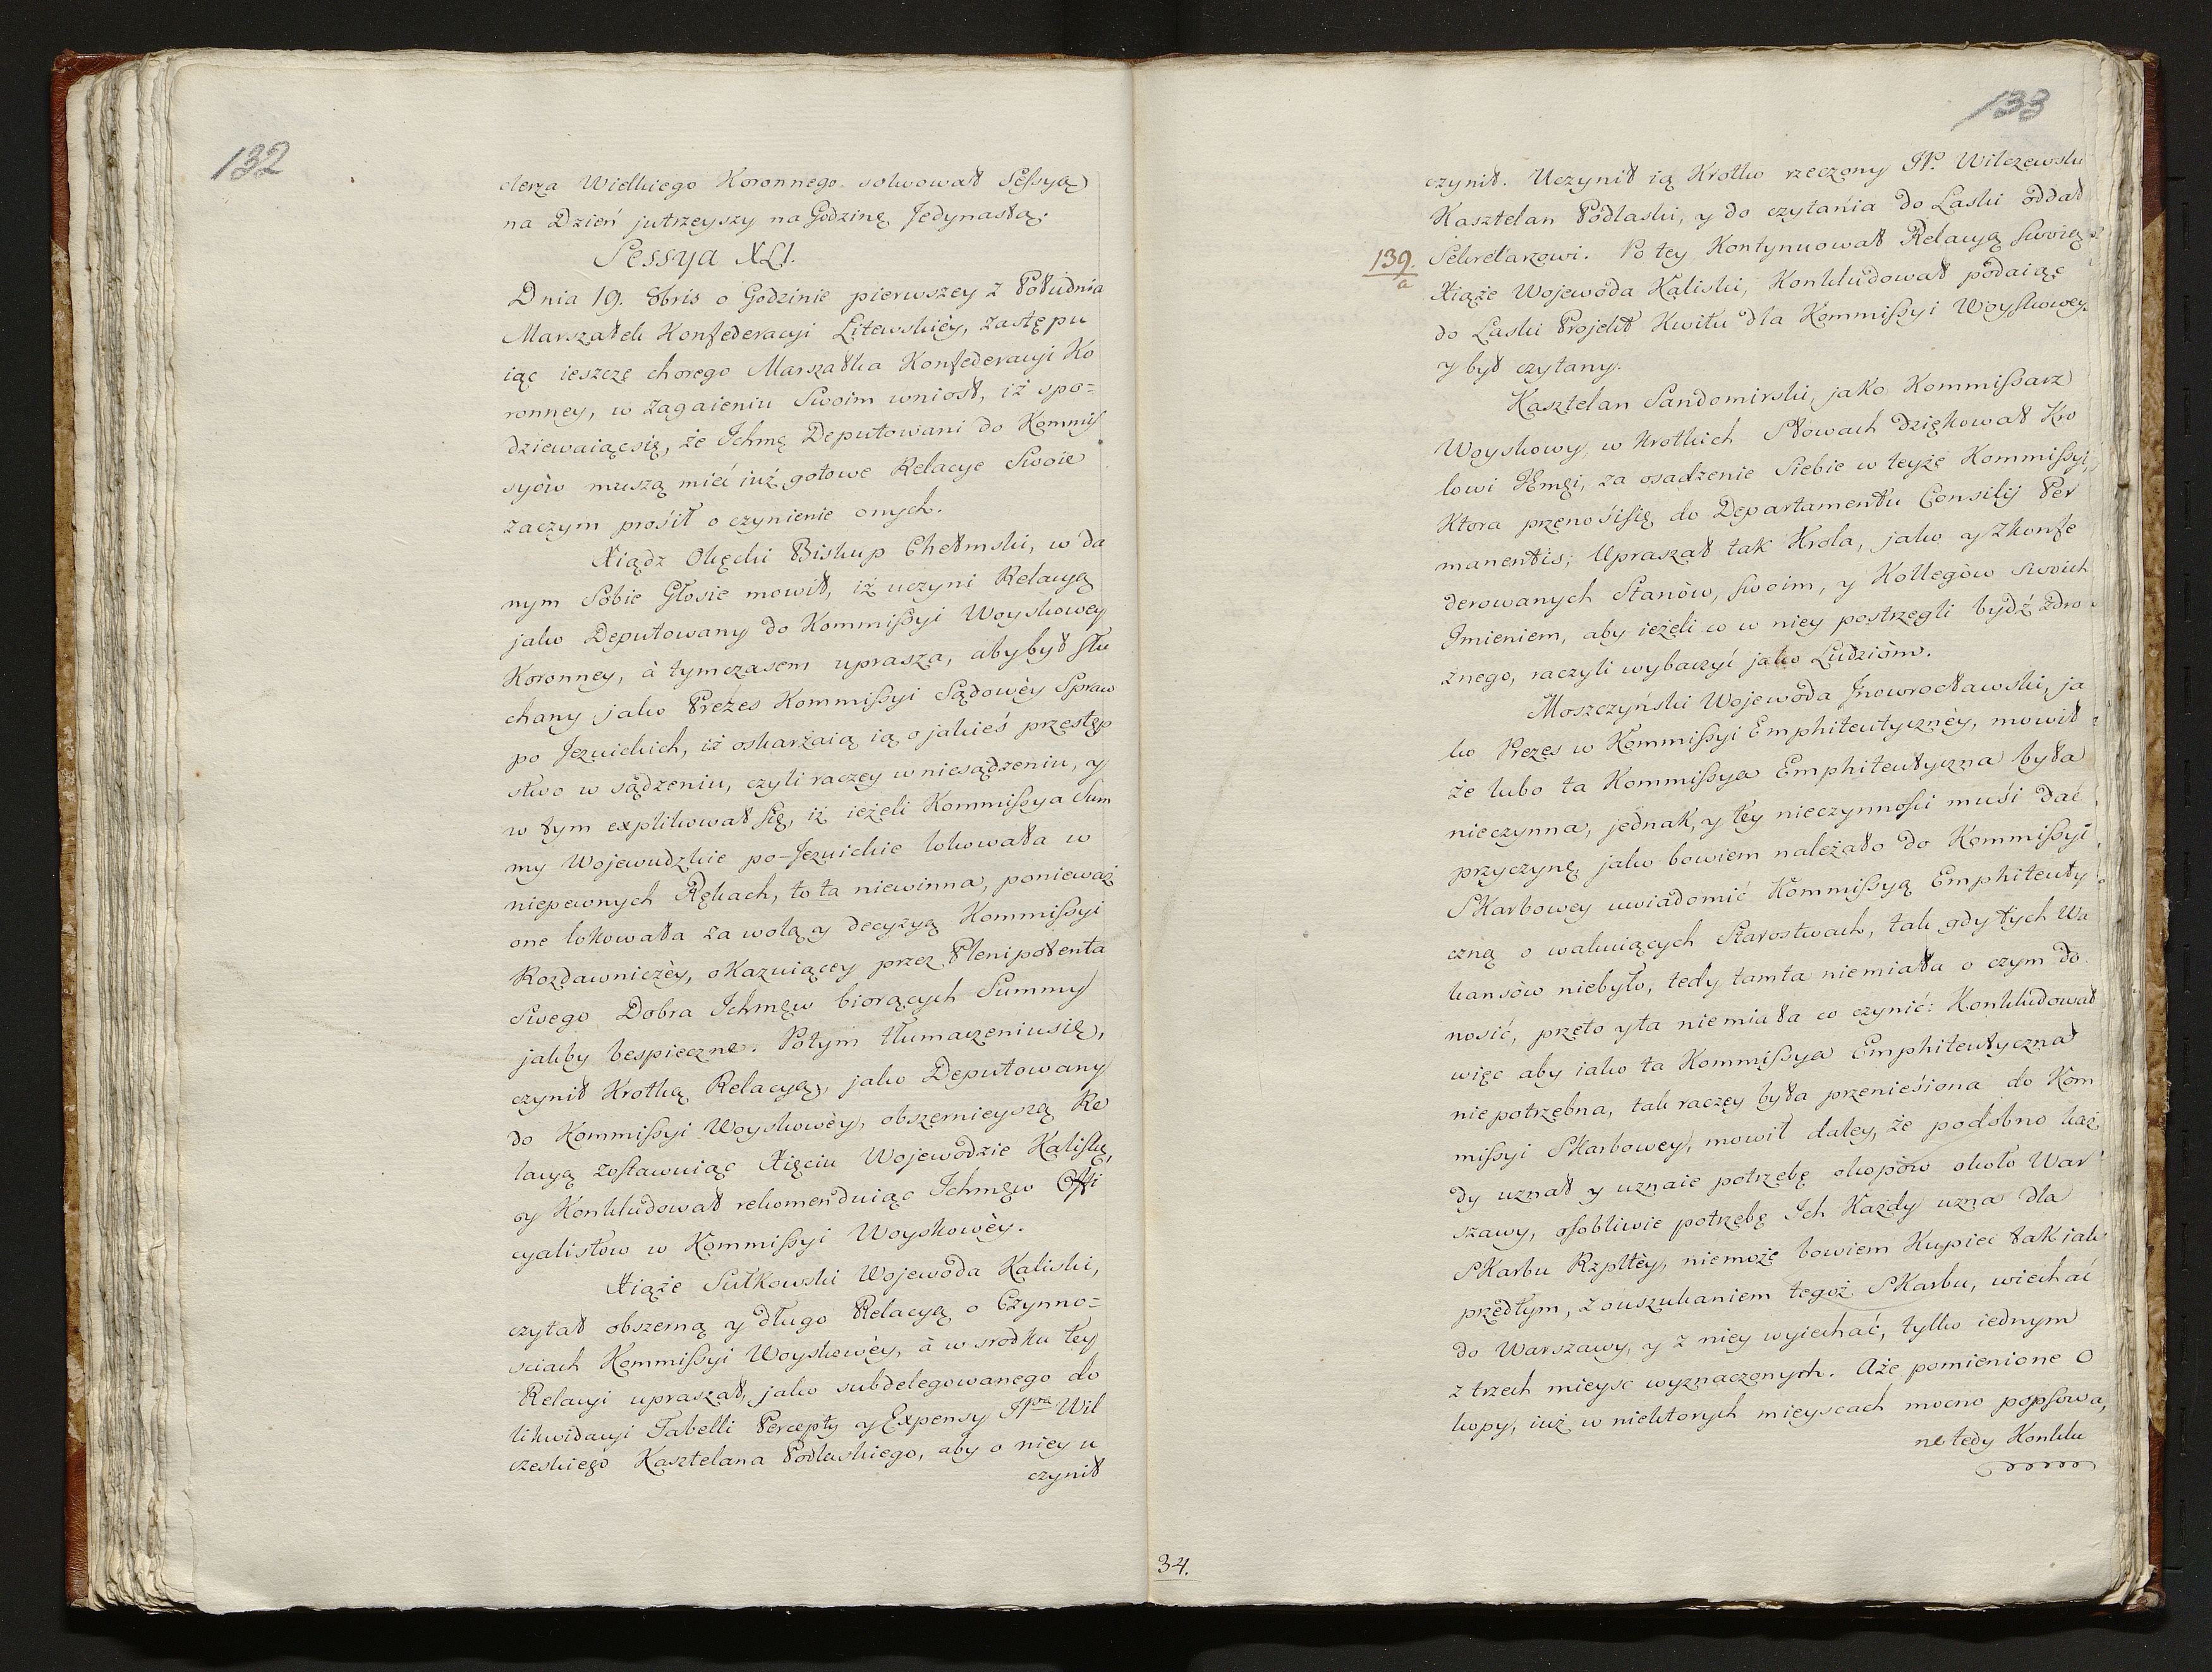 132
clerza Wielkiego Koronnego. solwował Sessyą
na Dzień jutrzeyszy na Godzinę Jedynastą.
Sessya XLI.
Dnia 19. 8bris o Godzinie pierwszey z Południa
Marszałek Konfederacyi Litewskiéy, zastępu
iąc ieszcze chorego Marszałka Konfederacyi Ko
ronney, w zagaieniu Swoim wniosł, iż spo-
dziewaiąc się, że Ichmę Deputowani do Kommis
syów muszą mieć iuż gotowe Relacye Swoie
zaczym prosił o czynienie onych.
Xiądz Okęcki Biskup Chełmski, w da
nym Sobie Głosie mowił, iż uczyni Relacyą
jako Deputowany do Kommissyi Woyskowey
Koronney, à tymczasem uprasza, aby był słu
chany jako Prezes Kommissyi Sądowéy Spraw
po Jezuickich, iż oskarżaią ią o jakieś przestęp
stwo w sądzeniu, czyli raczey w niesądzeniu, y
w tym explikował się, iż ieżeli Kommissya Sum
my Wojewudzkie po-Jezuickie lokowała w
niepewnych Rękach, to ta niewinna, ponieważ
one lokowała za wolą y decyzyą Kommissyi
Rozdawniczéy, okazuiącey przez Plenipotenta
Swego Dobra Ichmęw biorących Summy
jakby bespieczne. Potym tłumaczeniu się,
czynił Krotką Relacyą, jako Deputowany
do Kommissyi Woyskowéy, obszernieyszą Re
lacyą zostawuiąc Xięciu Wojewodzie Kalisku,
y Konkludował rekomenduiąc Ichmęw Offi
cyalistow w Kommissyi Woyskowéy.
Xiąże Sułkowski Wojewoda Kaliski,
czytał obszerną y długo Relacyą o Czynno-
sciach Kommissyi Woyskowéy, à w srodku tey
Relacyi upraszał, jako subdelegowanego do
likwidacyi Tabelli Percepty y Expensy JPna Wil
czeskiego Kasztelana Podlaskiego, aby o niey u
czynił
133
czynił. Uczynił ią Krotko rzeczony JP. Wilczewski
Kasztelan Podlaski, y do czytania do Laski oddał
139.
a
Sekretarzowi. Po tey Kontynuował Relacyą swoią
Xiąże Wojewoda Kaliski, Konkludował podaiąc
do Laski Projekt Kwitu dla Kommissyi Woyskowey
y był czytany.
Kasztelan Sandomirski, jako Kommissarz
Woyskowy, w krotkich Słowach dziękował Kro
lowi Jmęi, za osadzenie Siebie w teyże Kommissyi,
Ktora przenosi się do Departamentu Consilij Per
manentis; Upraszał tak Krola, jako y Zkonfe
derowanych Stanòw, Swoim, y Kollegòw swoich
Jmieniem, aby ieżeli co w niey postrzegli bydź zdro
żnego, raczyli wybaczyć jako Ludziòm.
Moszczyński Wojewoda Jnowrocławski, ja
ko Prezes w Kommissyi Emphiteutycznéy, mowił
że lubo ta Kommissya Emphiteutyczna była
nieczynna, jednak, y tey nieczynności musi dać
przyczynę, jako bowiem należało do Kommissyi
SKarbowey uwiadomić Kommissyą Emphiteuty
czną o wakuiących Starostwach, tak gdy tych Wa
kansòw niebyło, tedy tamta niemiała o czym do
nosić, przeto y ta niemiała co czynić: Konkludował
więc aby iako ta Kommissya Emphiteutyczna
niepotrzebna, tak raczey była przeniesiona do Kom
missyi SKarbowey, mowił daley, że podobno każ
dy uznał y uznaie potrzebę okopòw około War
szawy, osobliwie potrzebę Ich Każdy uzna dla
SKarbu Rzpltéy, niemoże bowiem Kupiec tak iak
przedtym, z ouszukaniem tegoż SKarbu, wiechać
do Warszawy, y z niey wyiechać, tylko iednym
z trzech mieysc wyznaczonych. Aże pomienione O
kopy, iuż w niektorych mieyscach mocno popsowa,
ne tedy Konklu
34.